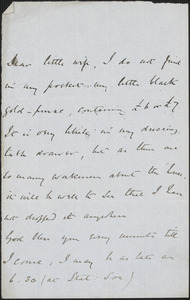 Dear little wife, I do not find
in my pocket my little black
gold-purse, containing £6 or £7
It is very likely in my dressing
table drawer, but as there are
so many workmen about the house,
it will be well to see that I have
not dropped it anywhere
God bless you every minute till
I come, I may be as late as
6.30 (at